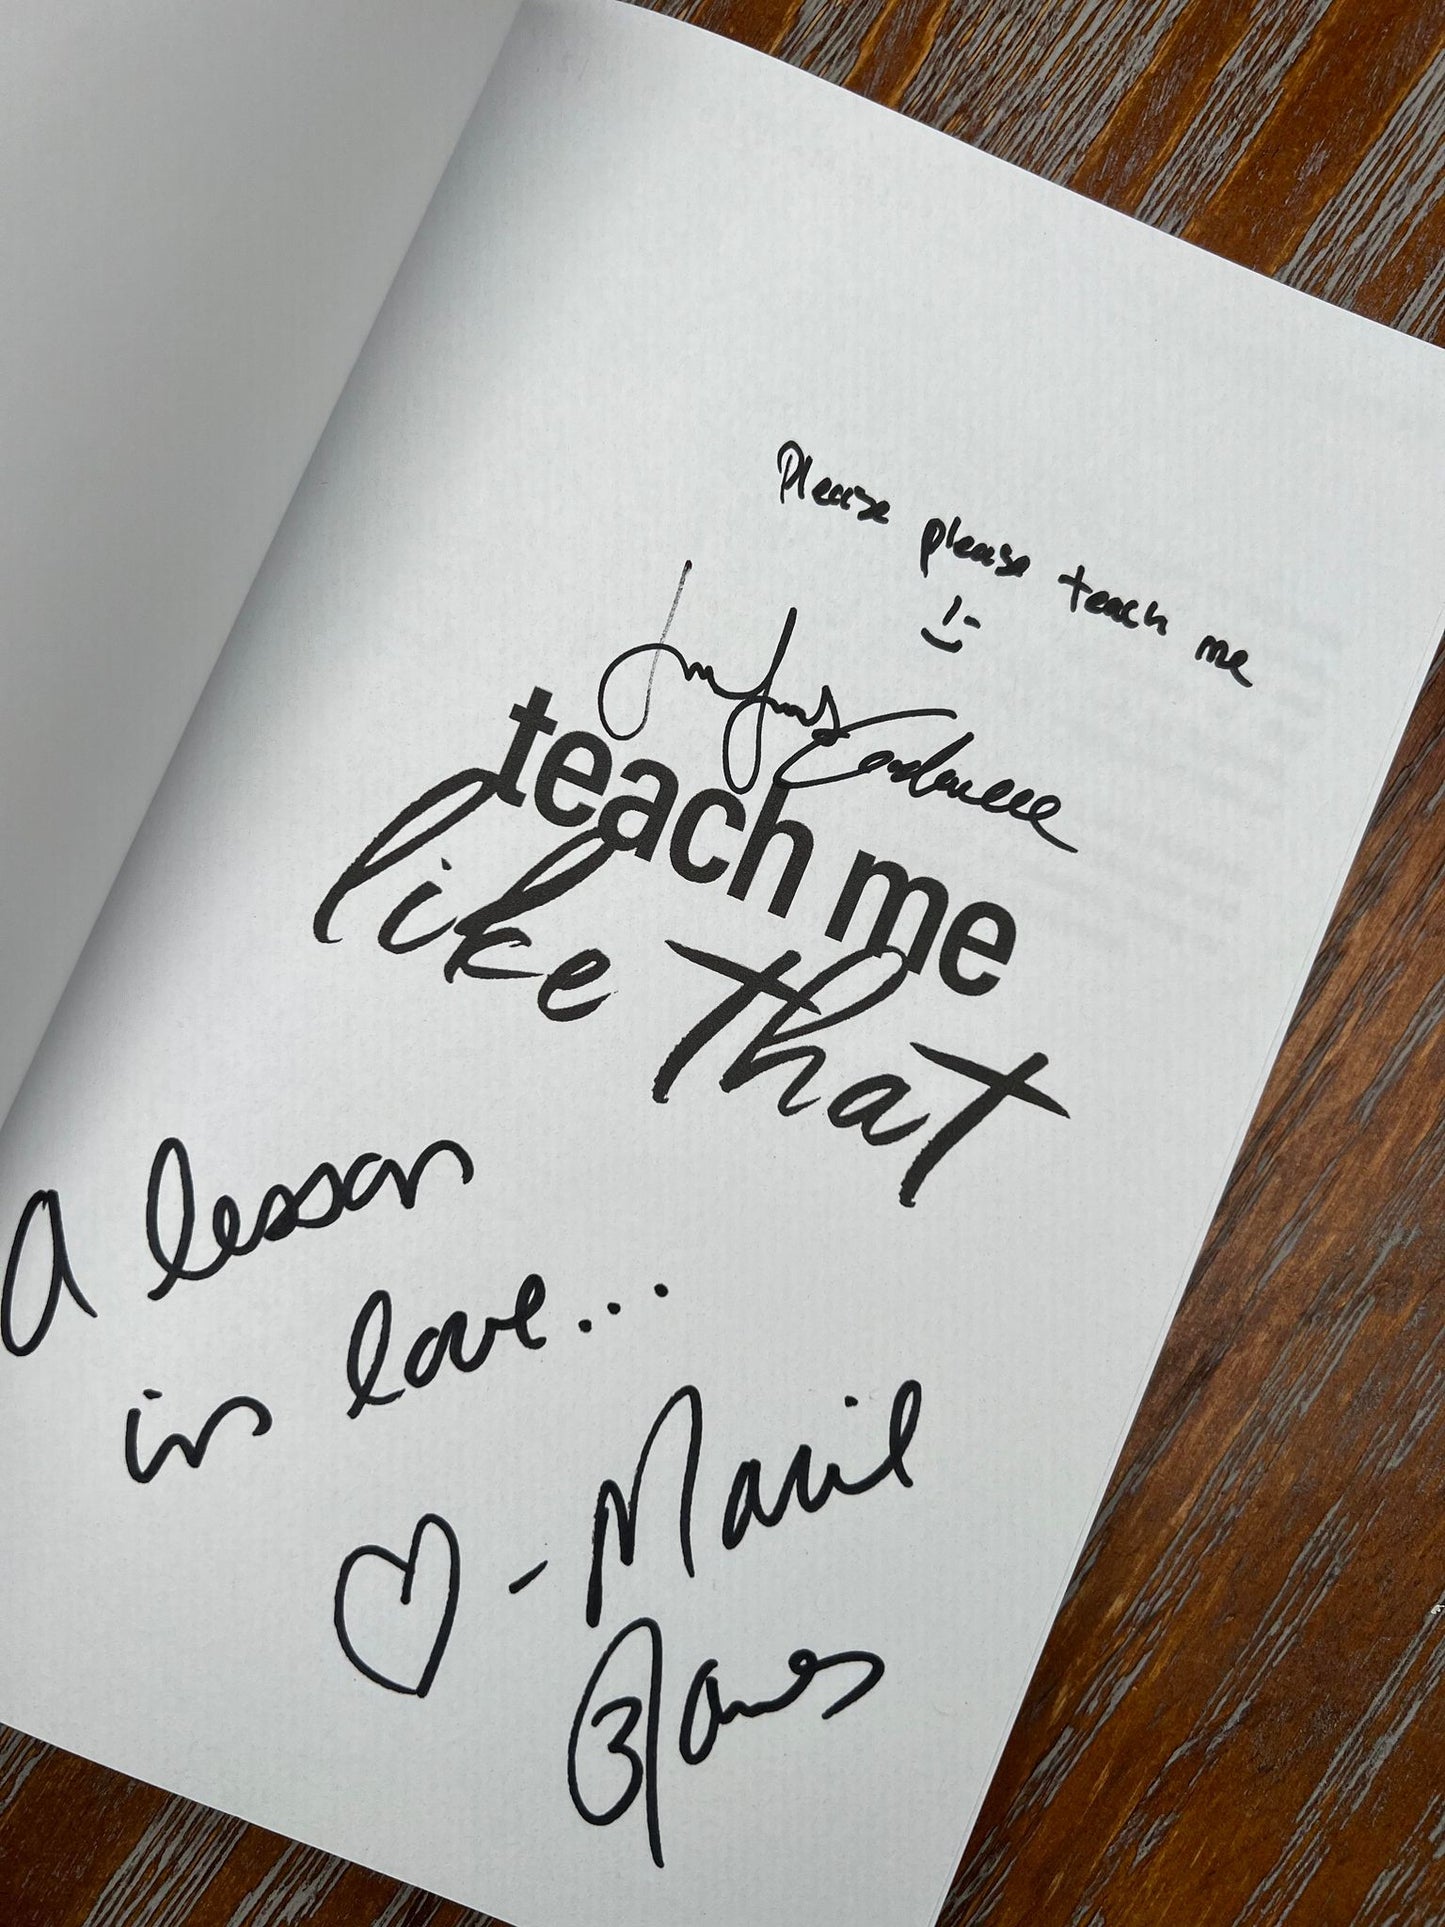 Please please teach me
teach me
like that
A lesson
in love...